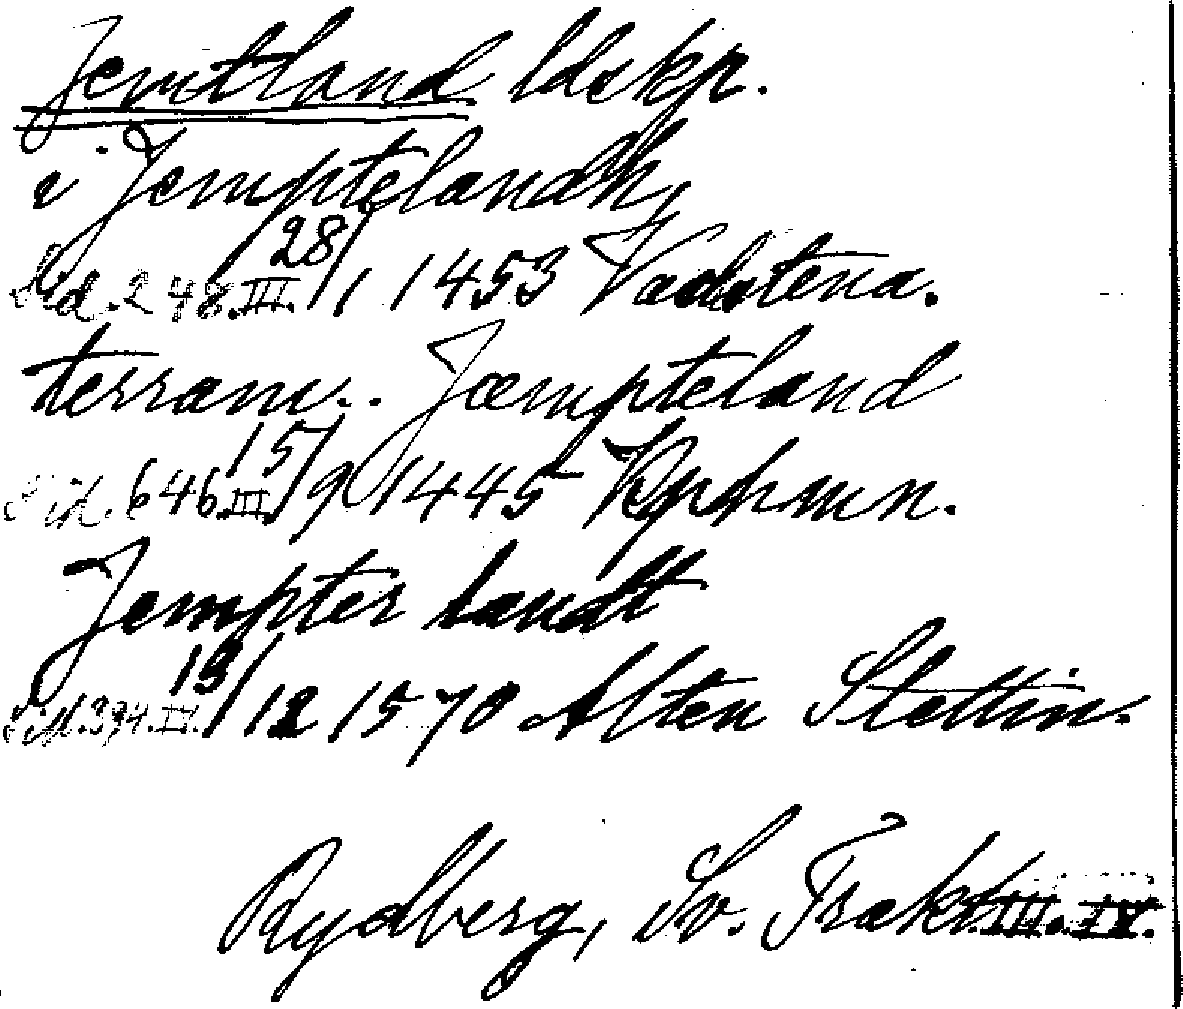 Jemtland ldskp.
i Jemptelandh,
Sid. 248.III. 28/1 1453 Vadstena.
terram.. Jæmpteland
Sid. 646.III. 15/9 1445 Kphmn.
Jempter landt
Sid. 394.IV. 13/12 1570 Alten Stettin.
Rydberg, Sv. Trakt. III. IV.